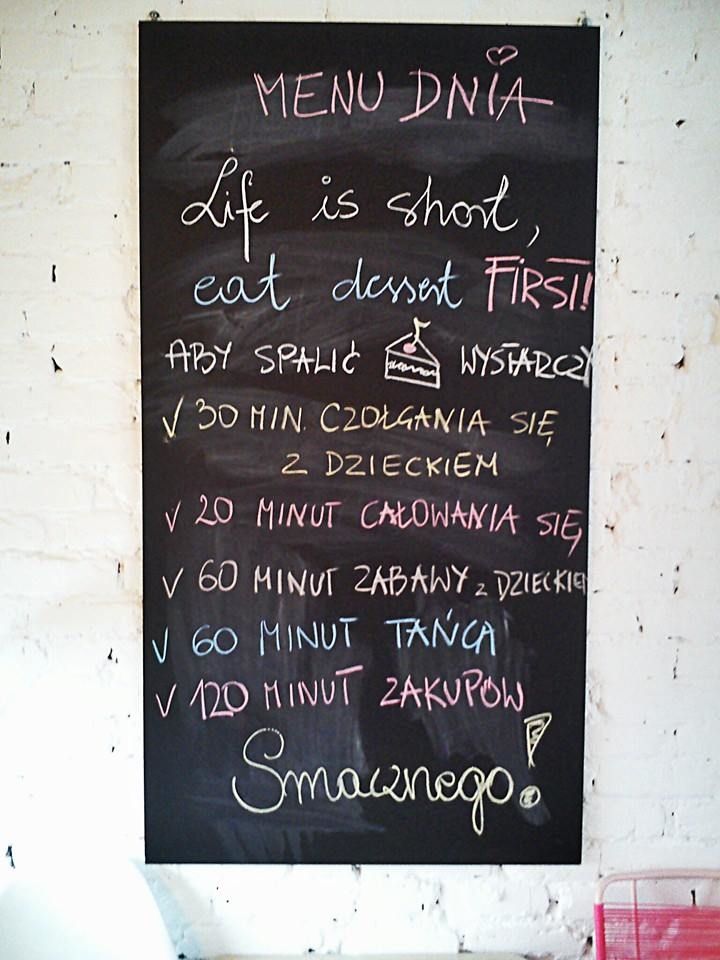 MENU DNIA
Life is short,
eat dessert FIRST!
ABY SPALIĆ WYSTARCZY
√ 30 MIN. CZOŁGANIA SIĘ
Z DZIECKIEM
√ 20 MINUT CAŁOWANIA SIĘ
√ 60 MINUT ZABAWY z DZIECKIEM
√ 60 MINUT TAŃCA
√ 120 MINUT ZAKUPÓW
Smacznego!